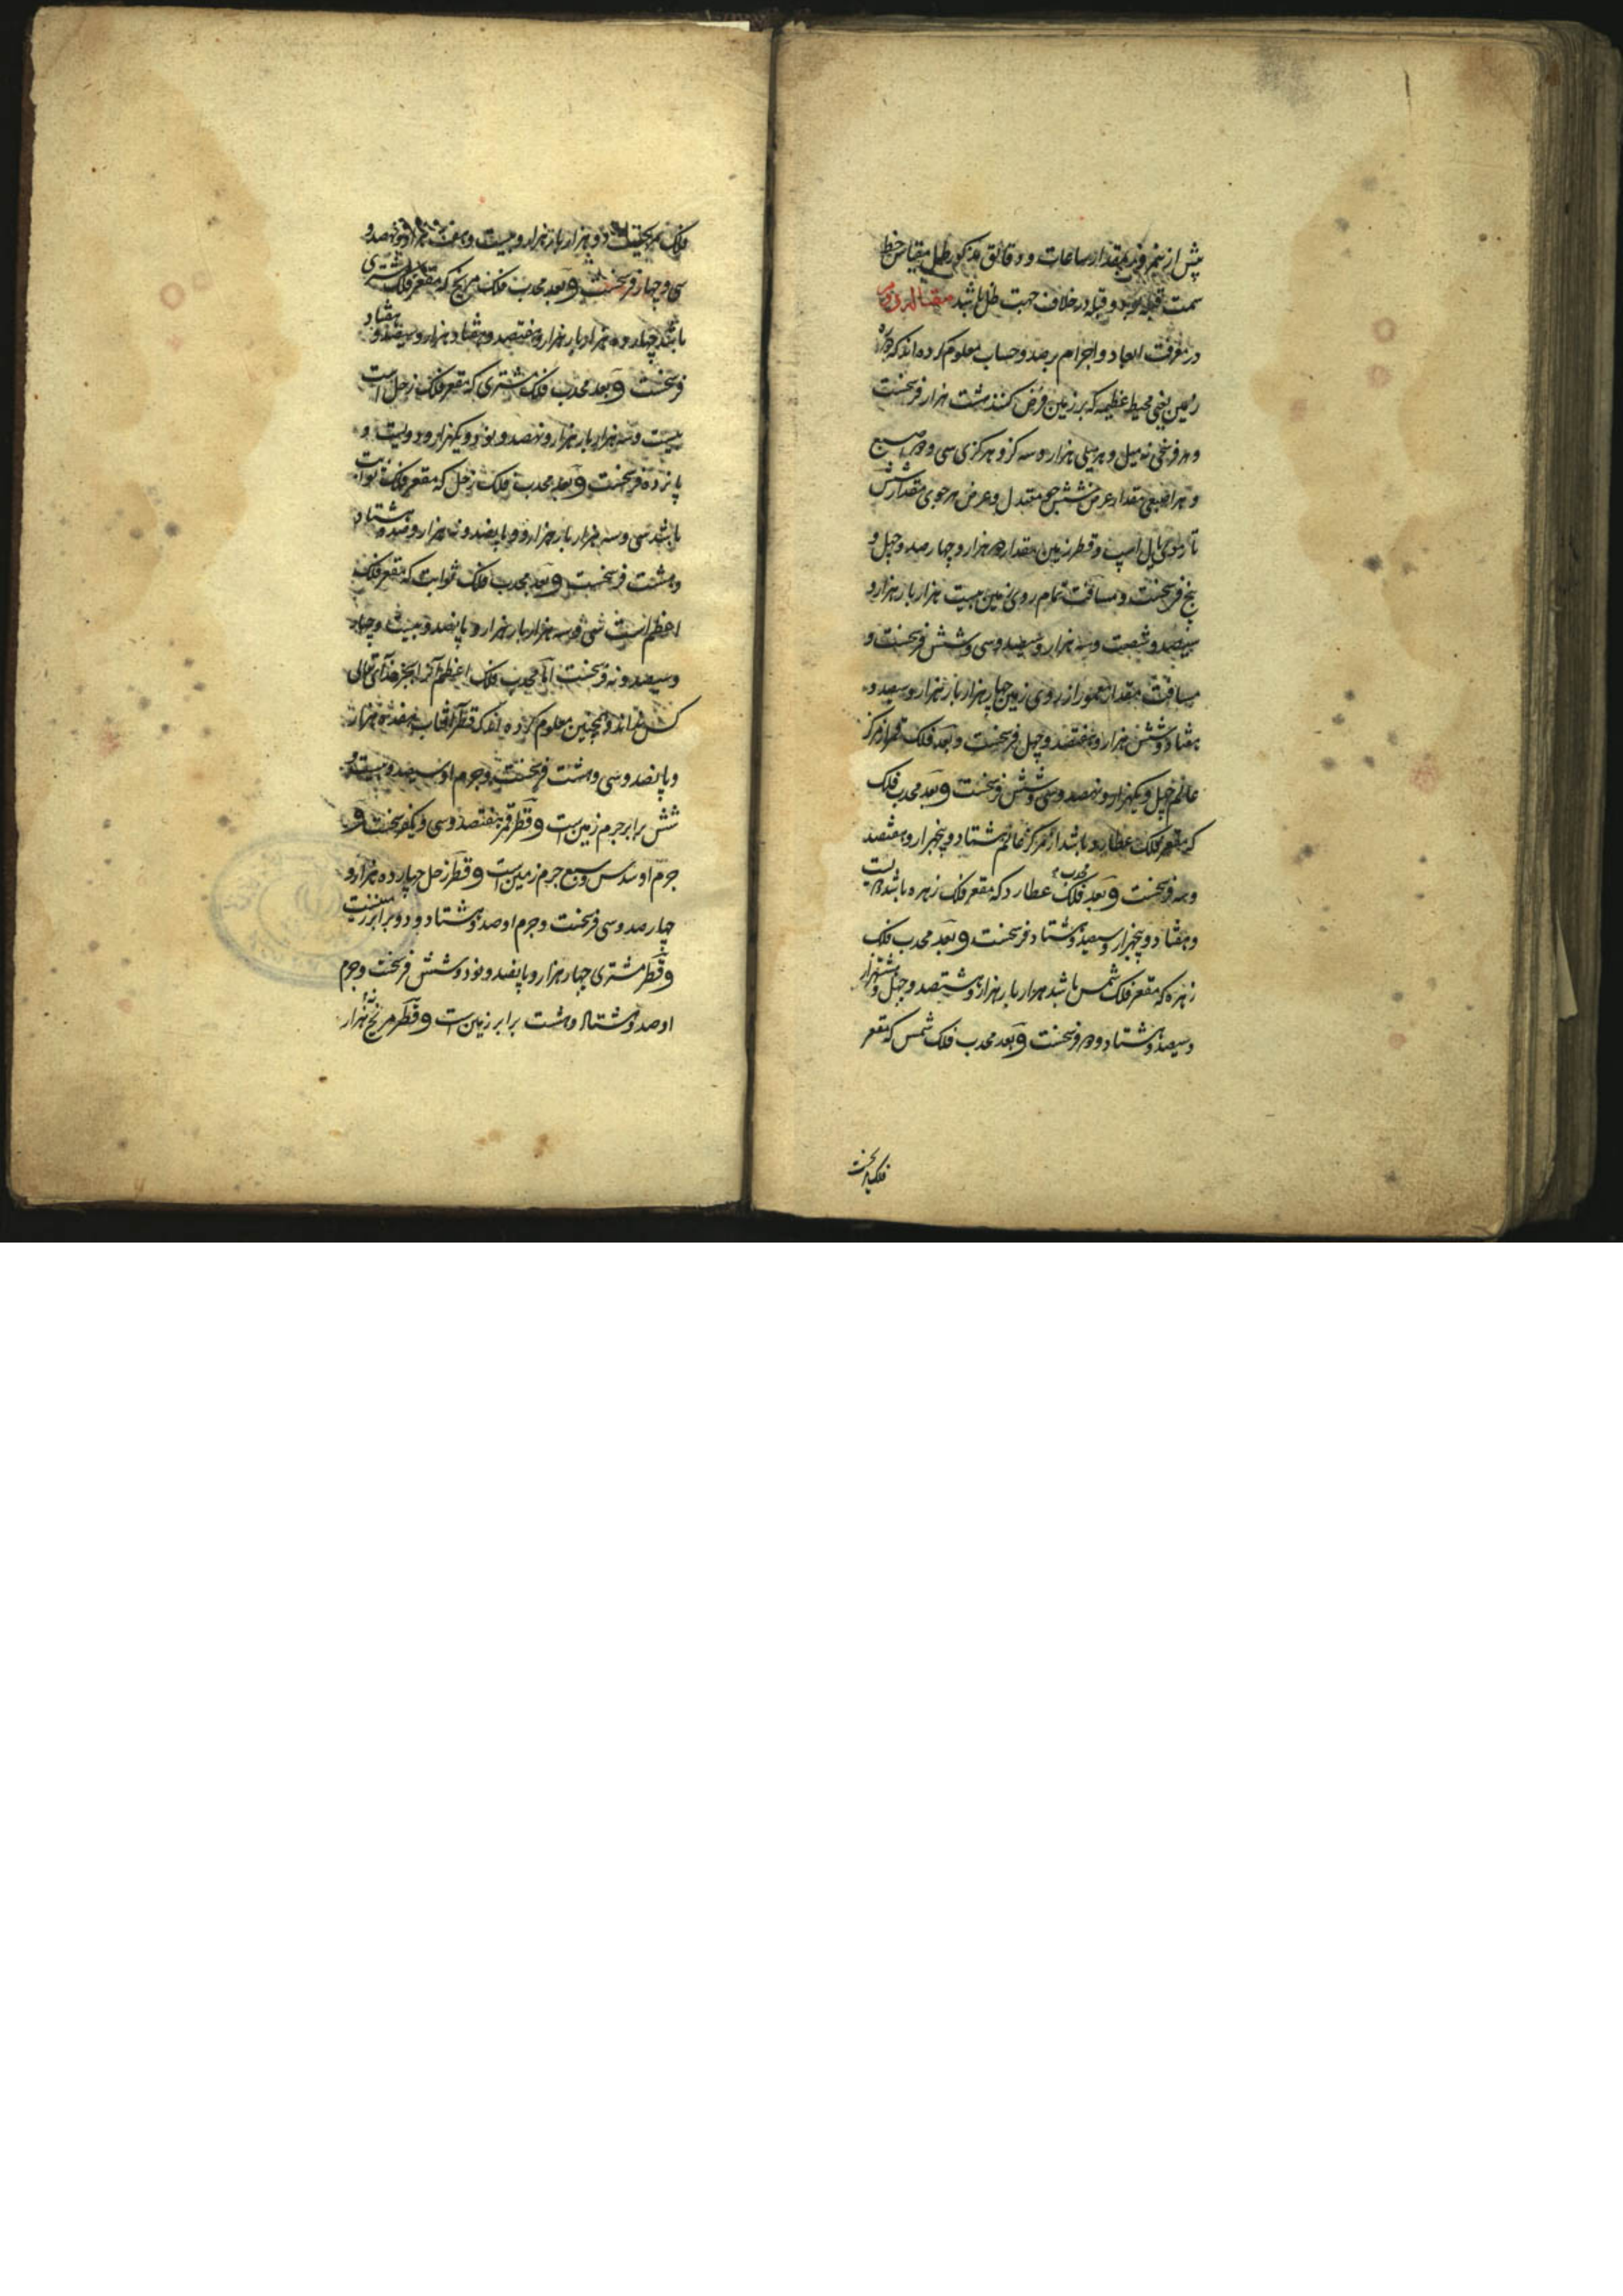 پیش از نیم روز بمقدار ساعات و دقائق مذکور ظل مقیاس خط
سمت قبله بود و قبله در خلاف جهت ظل باشد مقاله دوم
در معرفت ابعاد و اجرام برصد و حساب معلوم کرده اند که دوره
زمین یعنی محیط عظیمه که بر زمین فرض کنند هشت هزار فرسخست
و هر فرسخی سه میل و هر میلی هزار و سه گز و هر گزی سی و دو اصبع
و هر اصبعی مقدار عرض شش جو معتدل و عرض هر جوی مقدار شش
تار موی یال اسپ و قطر زمین مقدار دو هزار و چهار صد و چهل و
پنج فرسخست و مساقت تمام روی زمین بیست هزار بار هزار و
سیصد و شصت و سه هزار و سیصد و سی و شش فرسخست و
مساقت مقدار معمور از روی زمین چهار هزار بار هزار و سیصد و
هفتاد و شش هزار و هفتصد و چهل فرسخست و بعد فلک قمر از مرکز
عالم چهل و یکهزار و نهصد و سی و شش فرسخست و بعد محدب فلک
که مقعر فلک عطارد باشد از مرکز عالم هشتاد و پنجهزار و هفتصد
و سه فرسخست و بعد محدب فلک عطارد که مقعر فلک زهره باشد دویست
و هفتاد و پنجهزار و سیصد و هشتاد فرسخست و بعد محدب فلک
زهره که مقعر فلک شمس باشد هزار بار هزار و هشتصد و چهل و هشتهزار
و سیصد و هشتاد و دو فرسخست و بعد محدب فلک شمس که مقعر
فلک مریخست
فلک مریخست دو هزار بار هزار و بیست و هفت هزار و نهصد و
سی و چهار فرسخست و بعد محدب فلک مریخ که مقعر فلک مشتری
باشد چهارده هزار بار هزار و هفتصد و هفتاد هزار و سیصد و هفتاد
فرسخست و بعد محدب فلک مشتری که مقعر فلک زحل است
بیست و سه هزار بار هزار و نهصد و نود و یکهزار و دویست و
پانزده فرسخست و بعد محدب فلک زحل که مقعر فلک ثوابت
باشد سی و سه هزار بار هزار و پانصد و نه هزار و صد و هشتاد
و هشت فرسخست و بعد محدب فلک ثوابت که مقعر فلک
اعظم است سی و سه هزار بار هزار و پانصد و بیست و چهار
و سیصد و نه فرسخست اما محدب فلک اعظم آنرا بجز خدای تعالی
کس نداند و همچنین معلوم کرده اند که قطر آفتاب هفده هزار
و پانصد و سی و هشت فرسخست و جرم او سیصد و بیست و
شش برابر جرم زمین است و قطر قمر هفتصد و سی و یکفرسخست و
جرم او سدس و سبع جرم زمین است و قطر زحل چهارده هزار و
چهار صد و سی فرسخست و جرم او صد و هشتاد و دو برابر زمینست
و قطر مشتری چهار هزار و پانصد و نود و شش فرسخت و جرم
او صد و هشتاد و هشت برابر زمین است و قطر مریخ سه هزار